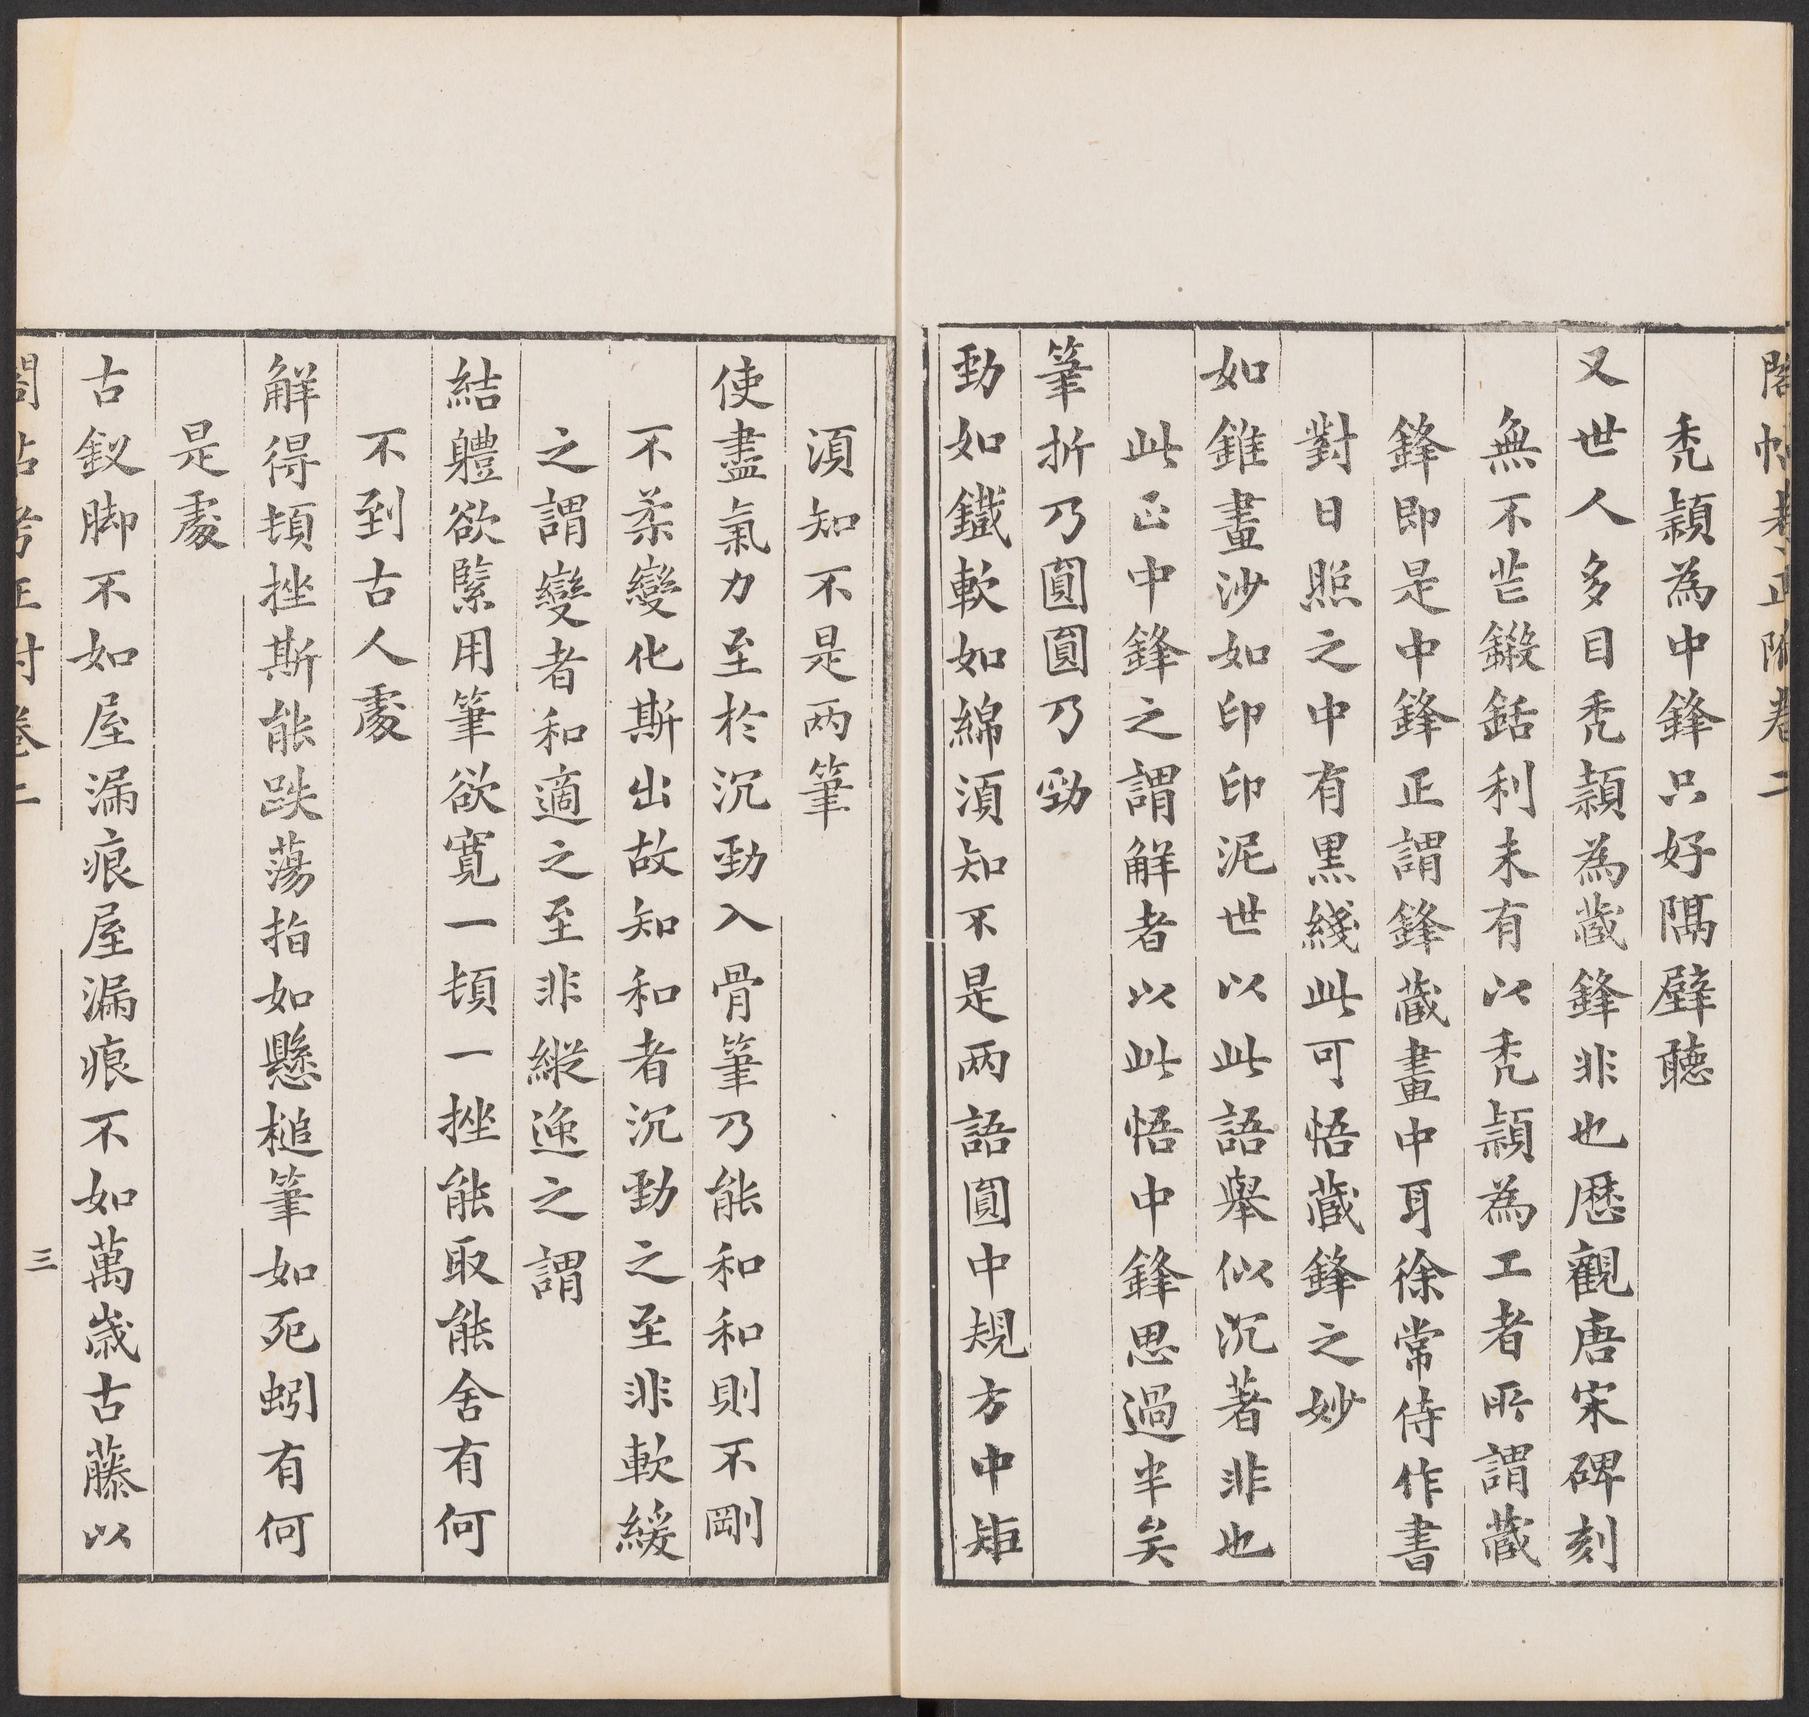 閣帖考正附卷二
秃穎為中鋒只好隅壁聽
又世人多目秃穎為藏鋒非也歷觀唐宋碑刻
無不芒鍛銛利未有以秃穎為工者所謂藏
鋒即是中鋒正謂鋒藏畫中耳徐常侍作書
對日照之中有黑綫此可悟藏鋒之妙
如錐畫沙如印印泥世以此語舉似沉著非也
此正中鋒之謂解者以此悟中鋒思過半矣
筆折乃圓圓乃勁
勁如鐵軟如綿湏知不是兩語圓中規方中矩
湏知不是兩筆
使盡氣力至於沉勁入骨筆乃能和和則不剛
不柔變化斯出故知和者沉勁之至非軟緩
之謂變者和適之至非縱逸之謂
結軆欲緊用筆欲寬一頓一挫能取能舍有何
不到古人䖏
解得頓挫斯能跌蕩指如懸槌筆如死蚓有何
是䖏
古釵脚不如屋漏痕屋漏痕不如萬歲古藤以
閣帖考正附卷二
三